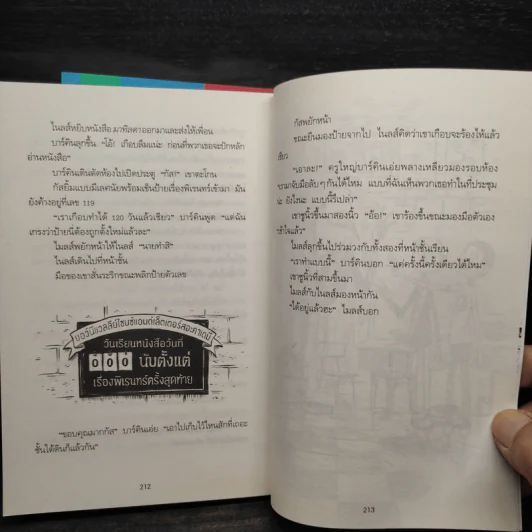 ไนลส์หยิบหนังสือ มาทิลดาออกมาและส่งให้เพื่อน
บาร์คินลุกขึ้น “โอ้! เกือบลืมแน่ะ ก่อนที่พวกเธอจะปักหลัก
อ่านหนังสือ”
บาร์คินเดินตัดห้องไปเปิดประตู “กัส!” เขาตะโกน
กัสยิ้มแบบมีเลศนัยพร้อมเข็นป้ายเรื่องพิเรนทร์เข้ามา มัน
ยังค้างอยู่ที่เลข 119
“เราเกือบทำได้ 120 วันแล้วเชียว” บาร์คินพูด “แต่ฉัน
เกรงว่าป้ายนี่ต้องถูกตั้งใหม่แล้วละ”
ไมลส์พยักหน้าให้ไนลส์ “นายทำสิ”
ไนลส์เดินไปที่หน้าชั้น
มือของเขาสั่นระริกขณะพลิกป้ายตัวเลข
วันเรียนหนังสือวันที่
000 นับตั้งแต่
เรื่องพิเรนทร์ครั้งสุดท้าย
“ขอบคุณมากกัส” บาร์คินเอ่ย “เอาไปเก็บไว้ไหนสักที่เถอะ
ชั้นใต้ดินก็แล้วกัน”
212
กัสพยักหน้า
ขณะยืนมองป้ายจากไป ไนลส์คิดว่าเขาเกือบจะร้องไห้แล้ว
เชียว
“เอาละ! ครูใหญ่บาร์คินเอ่ยพลางเหลียวมองรอบห้อง
จับมือลับๆ กันได้ไหม แบบที่ฉันเห็นพวกเธอทำในที่ประชุม
น่ะ ยังไงนะ แบบนี้รึเปล่า”
เขาชูนิ้วขึ้นมาสองนิ้ว “อ้อ!” เขาร้องขึ้นขณะมองมือตัวเอง
เข้าใจแล้ว”
ไมลส์ลุกขึ้นไปร่วมวงกับทั้งสองที่หน้าชั้นเรียน
“เราทำแบบนี้” บาร์คินบอก “แต่ครั้งนี้ครั้งเดียวได้ไหม”
เขาชูนิ้วที่สามขึ้นมา
ไมลส์กับไนลส์มองหน้ากัน
“ได้อยู่แล้วฮะ” ไมลส์บอก
213